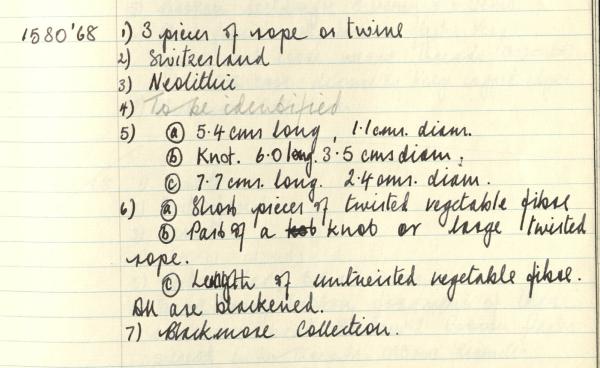 1580'68 1) 3 pieces of rope or twine
2) Switzerland
3) Neolithic
4) To be identified
5) (a) 5.4 cms long, 1.1 cms. diam.
(b) Knot. 6.0 long. 3.5 cms diam;
(c) 7.7 cms. long. 2.4 cms. diam.
6) (a) Short pieces of twisted vegetable fibre
(b) Part of a knob knot or large twisted
rope.
(c) Length of untwisted vegetable fibre.
All are blackened.
7) Blackmore Collection.